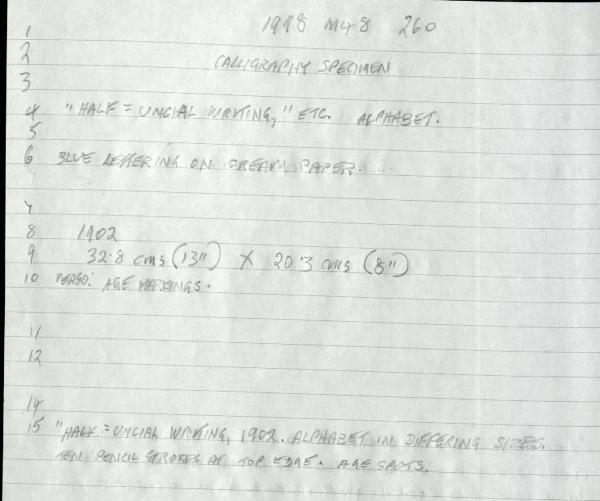 1998 M48 260
1
2 CALLIGRAPHY SPECIMEN
3
4 "HALF = UNCIAL WRITING," ETC. ALPHABET.
5
6 BLUE LETTERING ON CREAM PAPER. ...
7
8 1902
9 32.8 cms (13") X 20.3 cms (8")
10 VERSO: AGE MARKINGS.
11
12
14
15 "HALF = UNCIAL WRITING, 1902. ALPHABET IN DIFFERING SIZES.
TEN PENCIL STROKES AT TOP EDGE. AGE SPOTS.